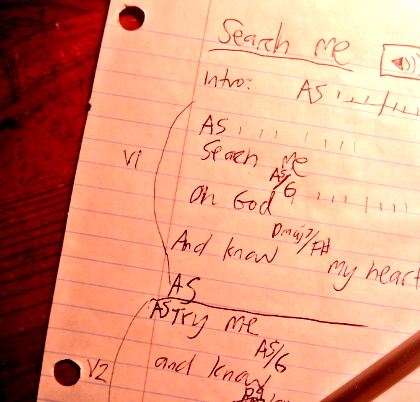 Search me
Intro: A5
A5
V1
Search me
A5/G
Oh God
Dmaj7/F#
And know my heart
A5
A5 Try me
A5/G
V2
and know